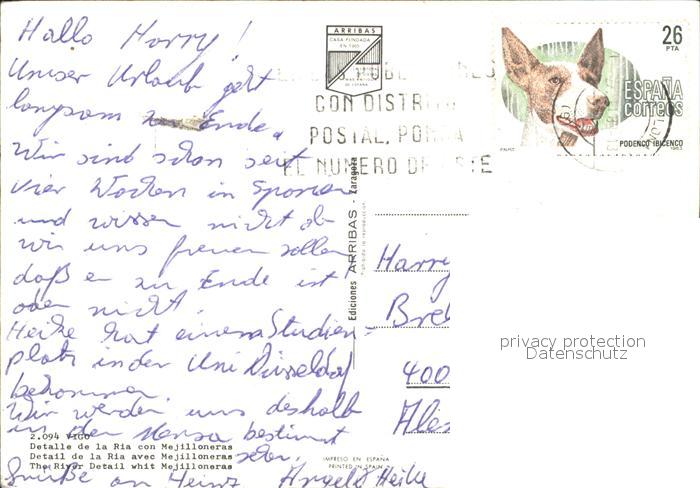 Hallo Harry!
Unser Urlaub geht
langsam zu Ende.
Wir sind schon seit
vier Wochen in Spanien
und wissen nicht ob
wir uns freuen sollen
daß er zu Ende ist
oder nicht.
Heike hat einen Studien-
platz in der Uni Düsseldorf
bekommen.
Wir werden uns deshalb
in der Mensa bestimmt
sehen.
Grüße an Heinz Heike
2.094 VIGO
Detalle de la Ria con Mejilloneras
Detail de la Ria avec Mejilloneras
The River Detail whit Mejilloneras
ARRIBAS
CASA FUNDADA
EN 1905
DE ESPAÑA
CON DISTRITO
POSTAL, PONGA
EL NUMERO DE ESTE
26
PTA
ESPAÑA
correos
PODENCO IBICENCO
1983
Ediciones ARRIBAS - Zaragoza
Harry
400
privacy protection
Datenschutz
IMPRESO EN ESPAÑA
PRINTED IN SPAIN